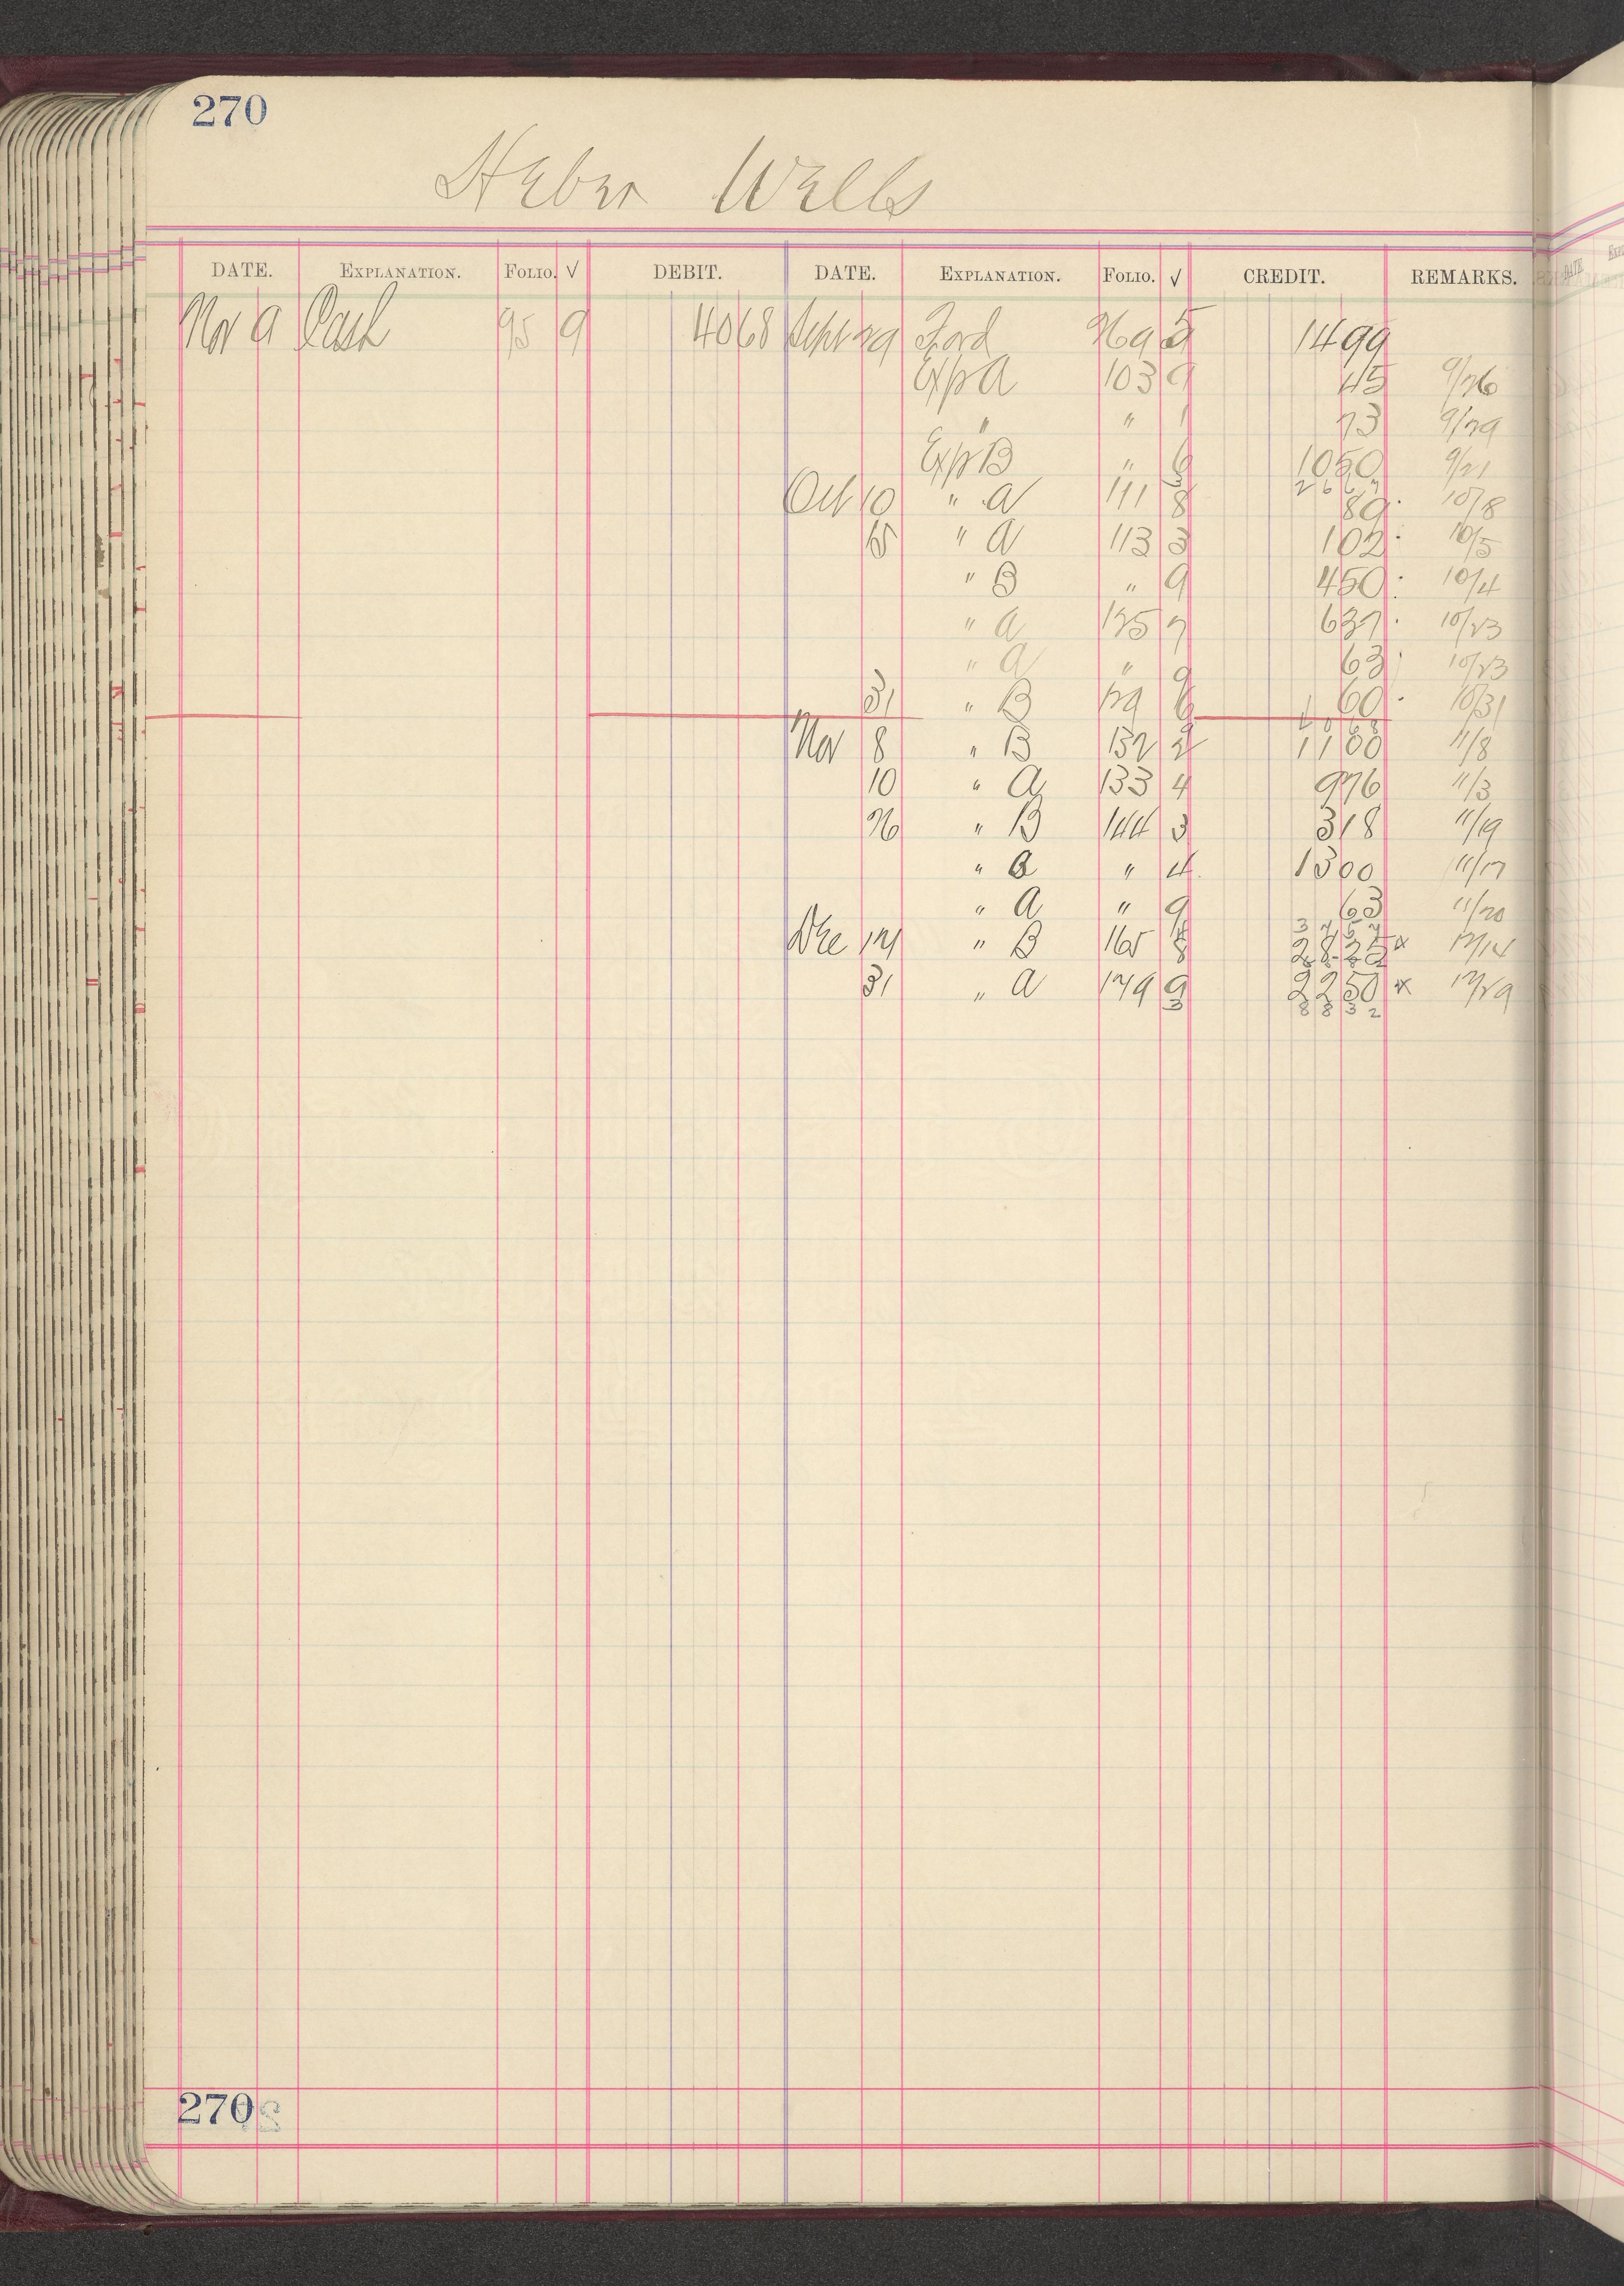 270
Heber Wells
DATE. EXPLANATION. FOLIO. √ DEBIT. DATE. EXPLANATION. FOLIO. √ CREDIT. REMARKS.
Nov 9 Cash 95 9 4068 Sept 29 Ford 269 5 1499
Exp A 103 9 45 9/26
" " 1 73 9/29
Exp B " 6 1050 9/21
2667
Oct 10 " A 111 8 89 10/8
15 " A 113 3 102 10/5
" B " 9 450 10/4
" A 125 7 637 10/23
" A " 9 63 10/23
31 " B 129 6 60 10/31
4068
Nov 8 " B 132 2 1100 11/8
10 " A 133 4 976 11/3
26 " B 144 3 318 11/19
" B " 4 1300 11/17
" A " 9 63 11/20
3757
Dec 14 " B 165 8 2825 x 12/14
6582
31 " A 179 9 2250 x 12/29
3 8832
270